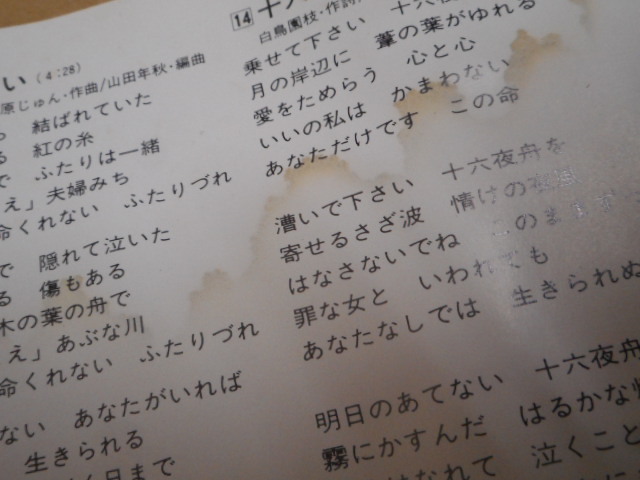 い (4:28)
原じゅん・作曲/山田年秋・編曲
結ばれていた
る 紅の糸
で ふたりは一緒
え」夫婦みち
命くれない ふたりづれ
で 隠れて泣いた
る 傷もある
木の葉の舟で
え」あぶな川
命くれない ふたりづれ
ない あなたがいれば
生きられる
日まで
14 十六
白鳥園枝・作詞
乗せて下さい 十六夜
月の岸辺に 葦の葉がゆれる
愛をためらう 心と心
いいの私は かまわない
あなただけです この命
漕いで下さい 十六夜舟を
寄せるさざ波 情けの
はなさないでね このまま
罪な女と いわれても
あなたなしでは 生きられぬ
明日のあてない 十六夜舟
霧にかすんだ はるかな
はなれて 泣くこと